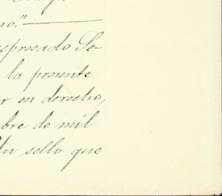 no."
espresado Se-
la presente
r en derecho,
bre de mil
Un sello que